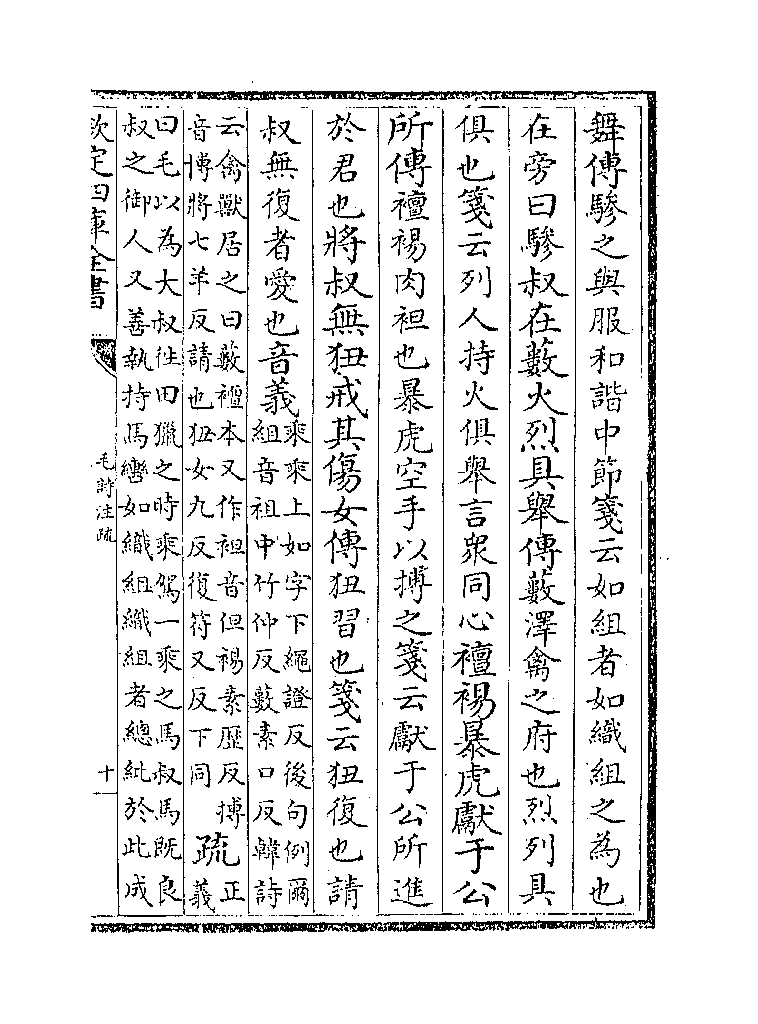 舞傳驂之與服和諧中節箋云如組者如織組之為也
在旁曰驂叔在藪火烈具舉傳藪澤禽之府也烈列具
俱也箋云列人持火俱舉言衆同心襢裼暴虎獻于公
所傳襢裼肉袒也暴虎空手以搏之箋云獻于公所進
於君也將叔無狃戒其傷女傳狃習也箋云狃復也請
叔無復者愛也音義乘乘上如字下繩證反後句例爾
組音祖中竹仲反藪素口反韓詩
云禽獸居之曰藪襢本又作袒音但裼素歷反搏
音博將七羊反請也狃女九反復符又反下同
疏正
義
曰毛以為大叔徃田獵之時乘駕一乘之馬叔馬既良
叔之御人又善執持馬轡如織組織組者總紕於此成
欽定四庫全書
毛詩注疏
十一